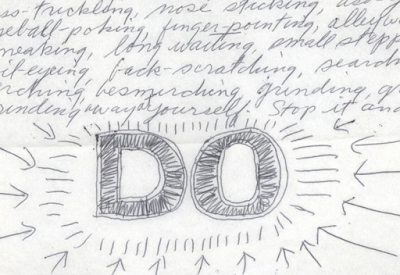 ss-trickling, nose sticking, ass-g
eball-poking, finger-pointing, alleyw
neaking, long waiting, small stepp
il-eyeing, back-scratching, search
rching, besmirching, grinding, gr
rinding away yourself. Stop it and
DO